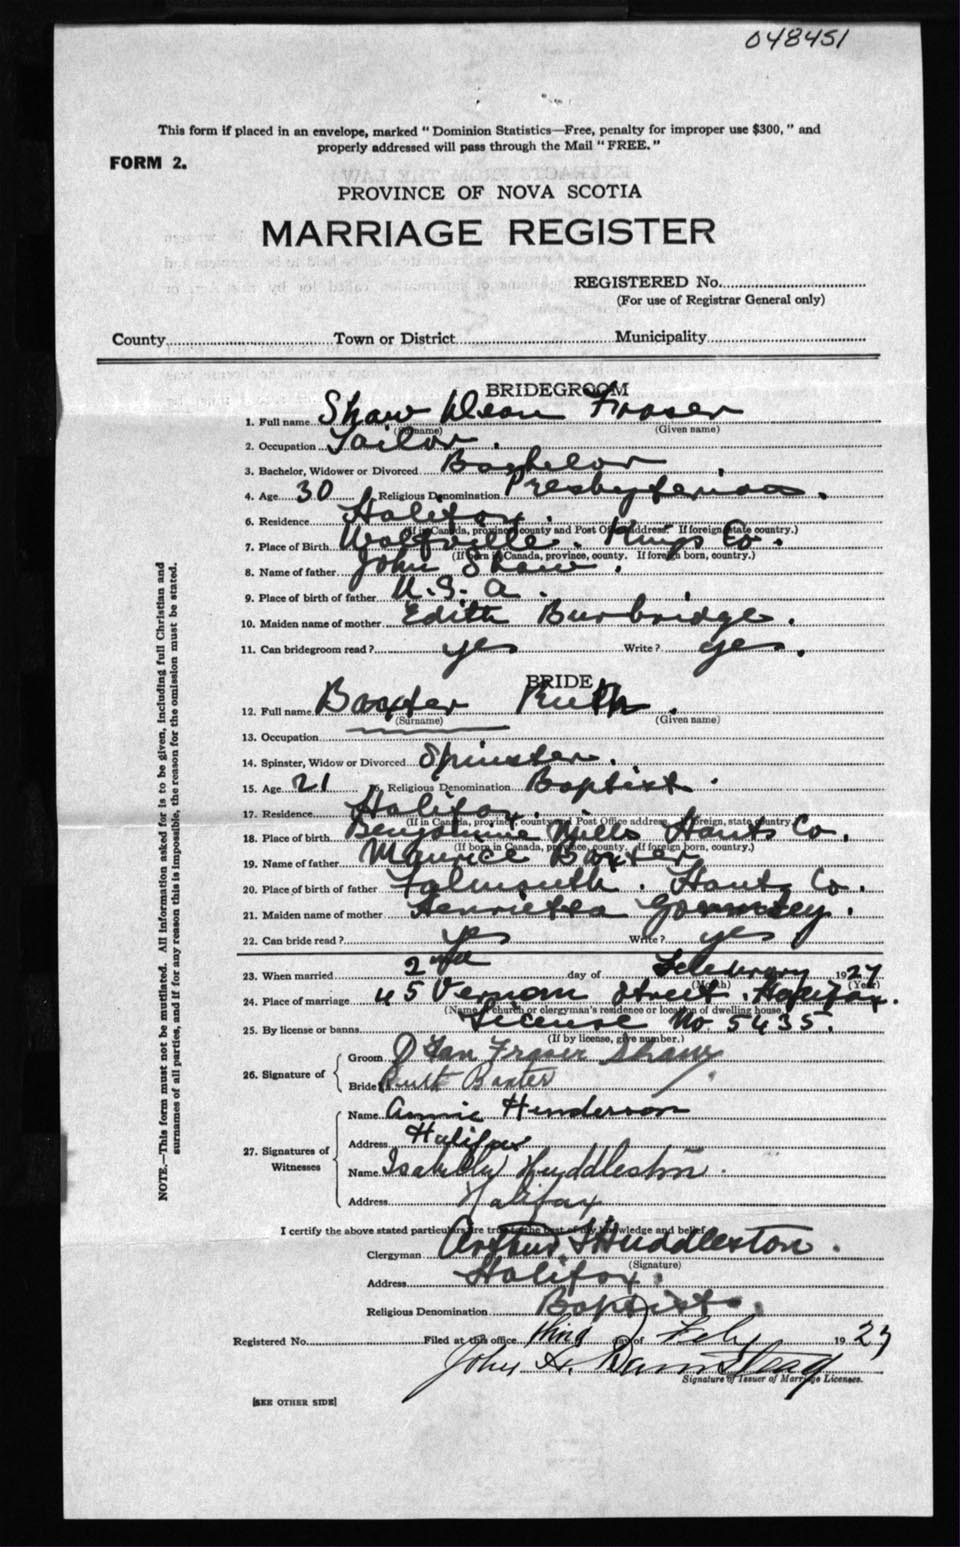 048451
This form if placed in an envelope, marked "Dominion Statistics—Free, penalty for improper use $300," and
properly addressed will pass through the Mail "FREE."
FORM 2.
PROVINCE OF NOVA SCOTIA
MARRIAGE REGISTER
REGISTERED No.
(For use of Registrar General only)
County Town or District Municipality
BRIDEGROOM
1. Full name Shaw Dean Fraser
(Surname) (Given name)
2. Occupation Tailor.
3. Bachelor, Widower or Divorced Bachelor.
4. Age 30 Religious Denomination Presbyterian.
6. Residence Halifax.
(If in Canada, province, county and Post Office address. If foreign state country.)
7. Place of Birth Wolfville. Kings Co.
(If born in Canada, province, county. If foreign born, country.)
8. Name of father John Shaw.
9. Place of birth of father U.S.A.
10. Maiden name of mother Edith Burbridge.
11. Can bridegroom read? yes Write? yes.
BRIDE
12. Full name Baxter Ruth.
(Surname) (Given name)
13. Occupation
14. Spinster, Widow or Divorced Spinster.
15. Age 21 16. Religious Denomination Baptist.
17. Residence Halifax.
(If in Canada, province, county and Post Office address, if foreign, state country.)
18. Place of birth Benjamine Mills Hants Co.
(If born in Canada, province, county. If foreign born, country.)
19. Name of father Maurice Baxter
20. Place of birth of father Falmouth. Hants Co.
21. Maiden name of mother Henrietta
22. Can bride read? yes Write? yes
23. When married 2nd day of February 1927
(Month) (Year)
24. Place of marriage 45 Vernon Street. Halifax.
(Name of church or clergyman's residence or location of dwelling house.)
25. By license or banns License No 5435.
(If by license, give number.)
26. Signature of Groom Fraser Shaw
Bride Ruth Baxter
27. Signatures of Witnesses Name Annie Henderson
Address Halifax
Name Huddleston.
Address Halifax
I certify the above stated particulars are true to the best of my knowledge and belief.
Clergyman Arthur Huddleston.
(Signature)
Address Halifax.
Religious Denomination Baptist.
Registered No. Filed at this office third day of Feby 1927
John A.
Signature of Issuer of Marriage Licenses.
[SEE OTHER SIDE]
NOTE.—This form must not be mutilated. All information asked for is to be given, including full Christian and
surnames of all parties, and if for any reason this is impossible, the reason for the omission must be stated.